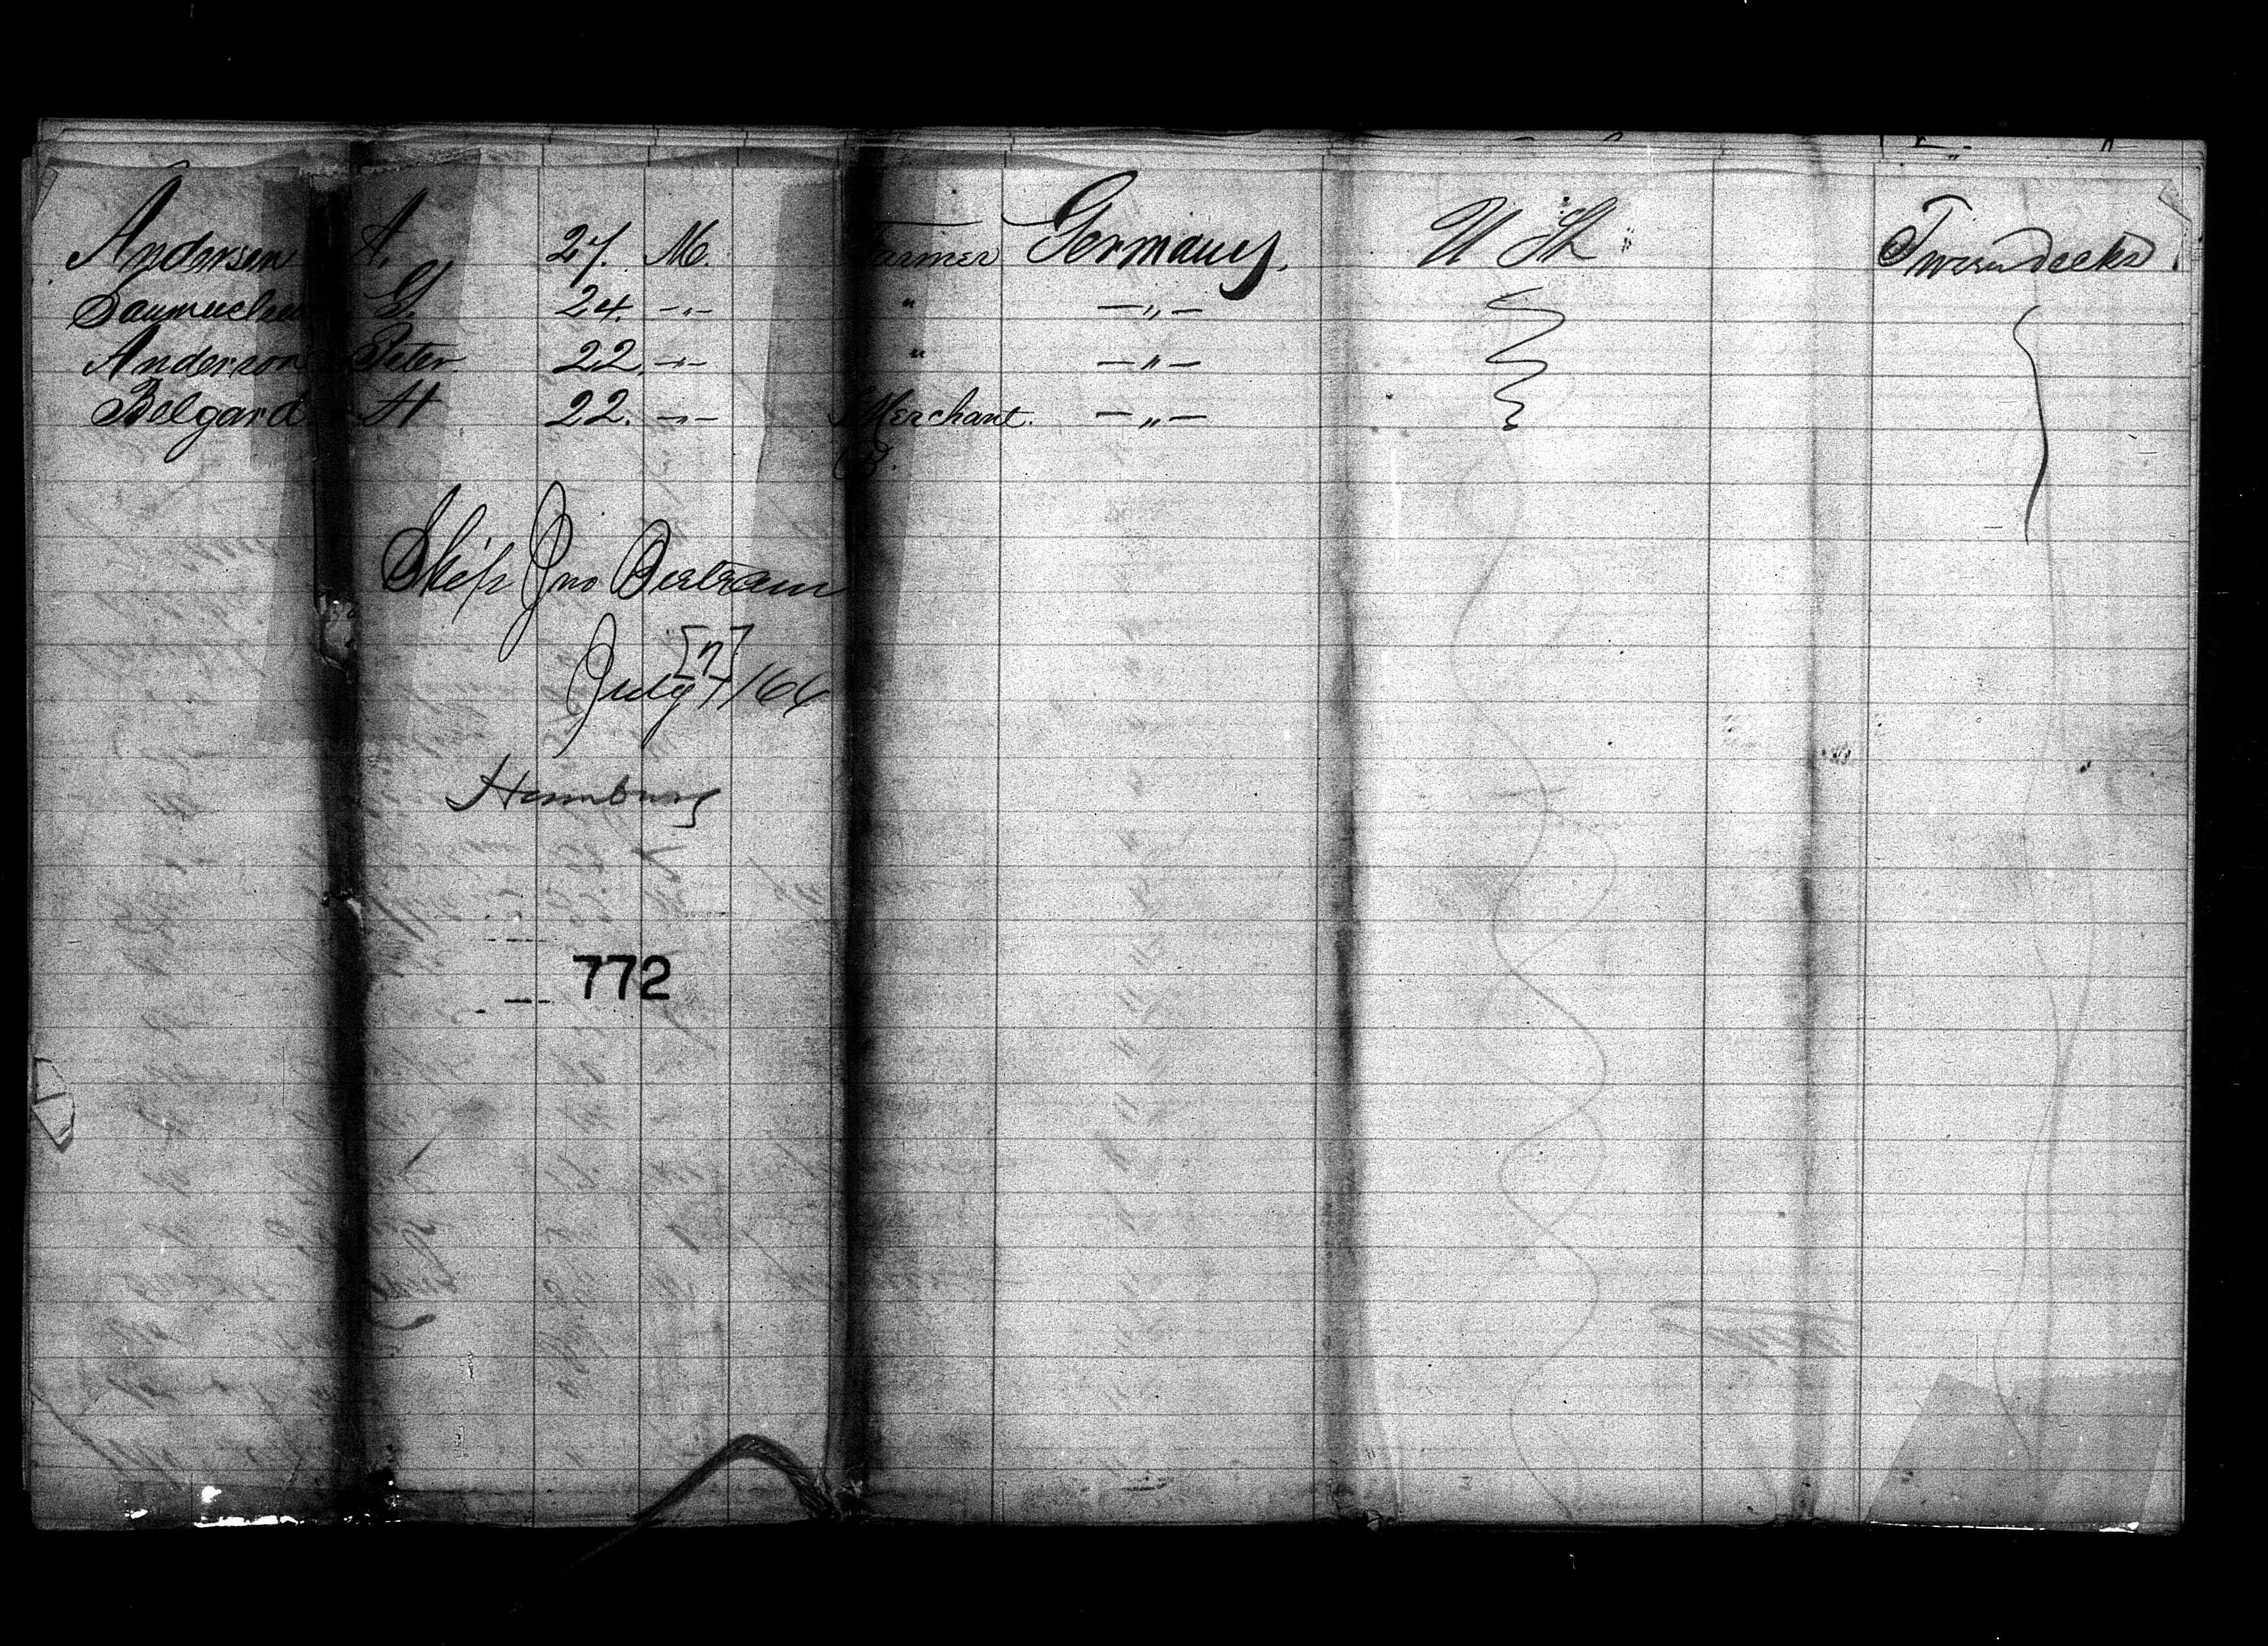 Andersen A. 27. M. Farmer Germany. U St Tween Decks
Saumuelsen G. 24. -"- " -"-
Anderson Peter. 22. -"- " -"-
Belgard. H 22. -"- Merchant. -"-
B.
Ship Jno Bertram
[7]
July 7/66
Hamburg
772